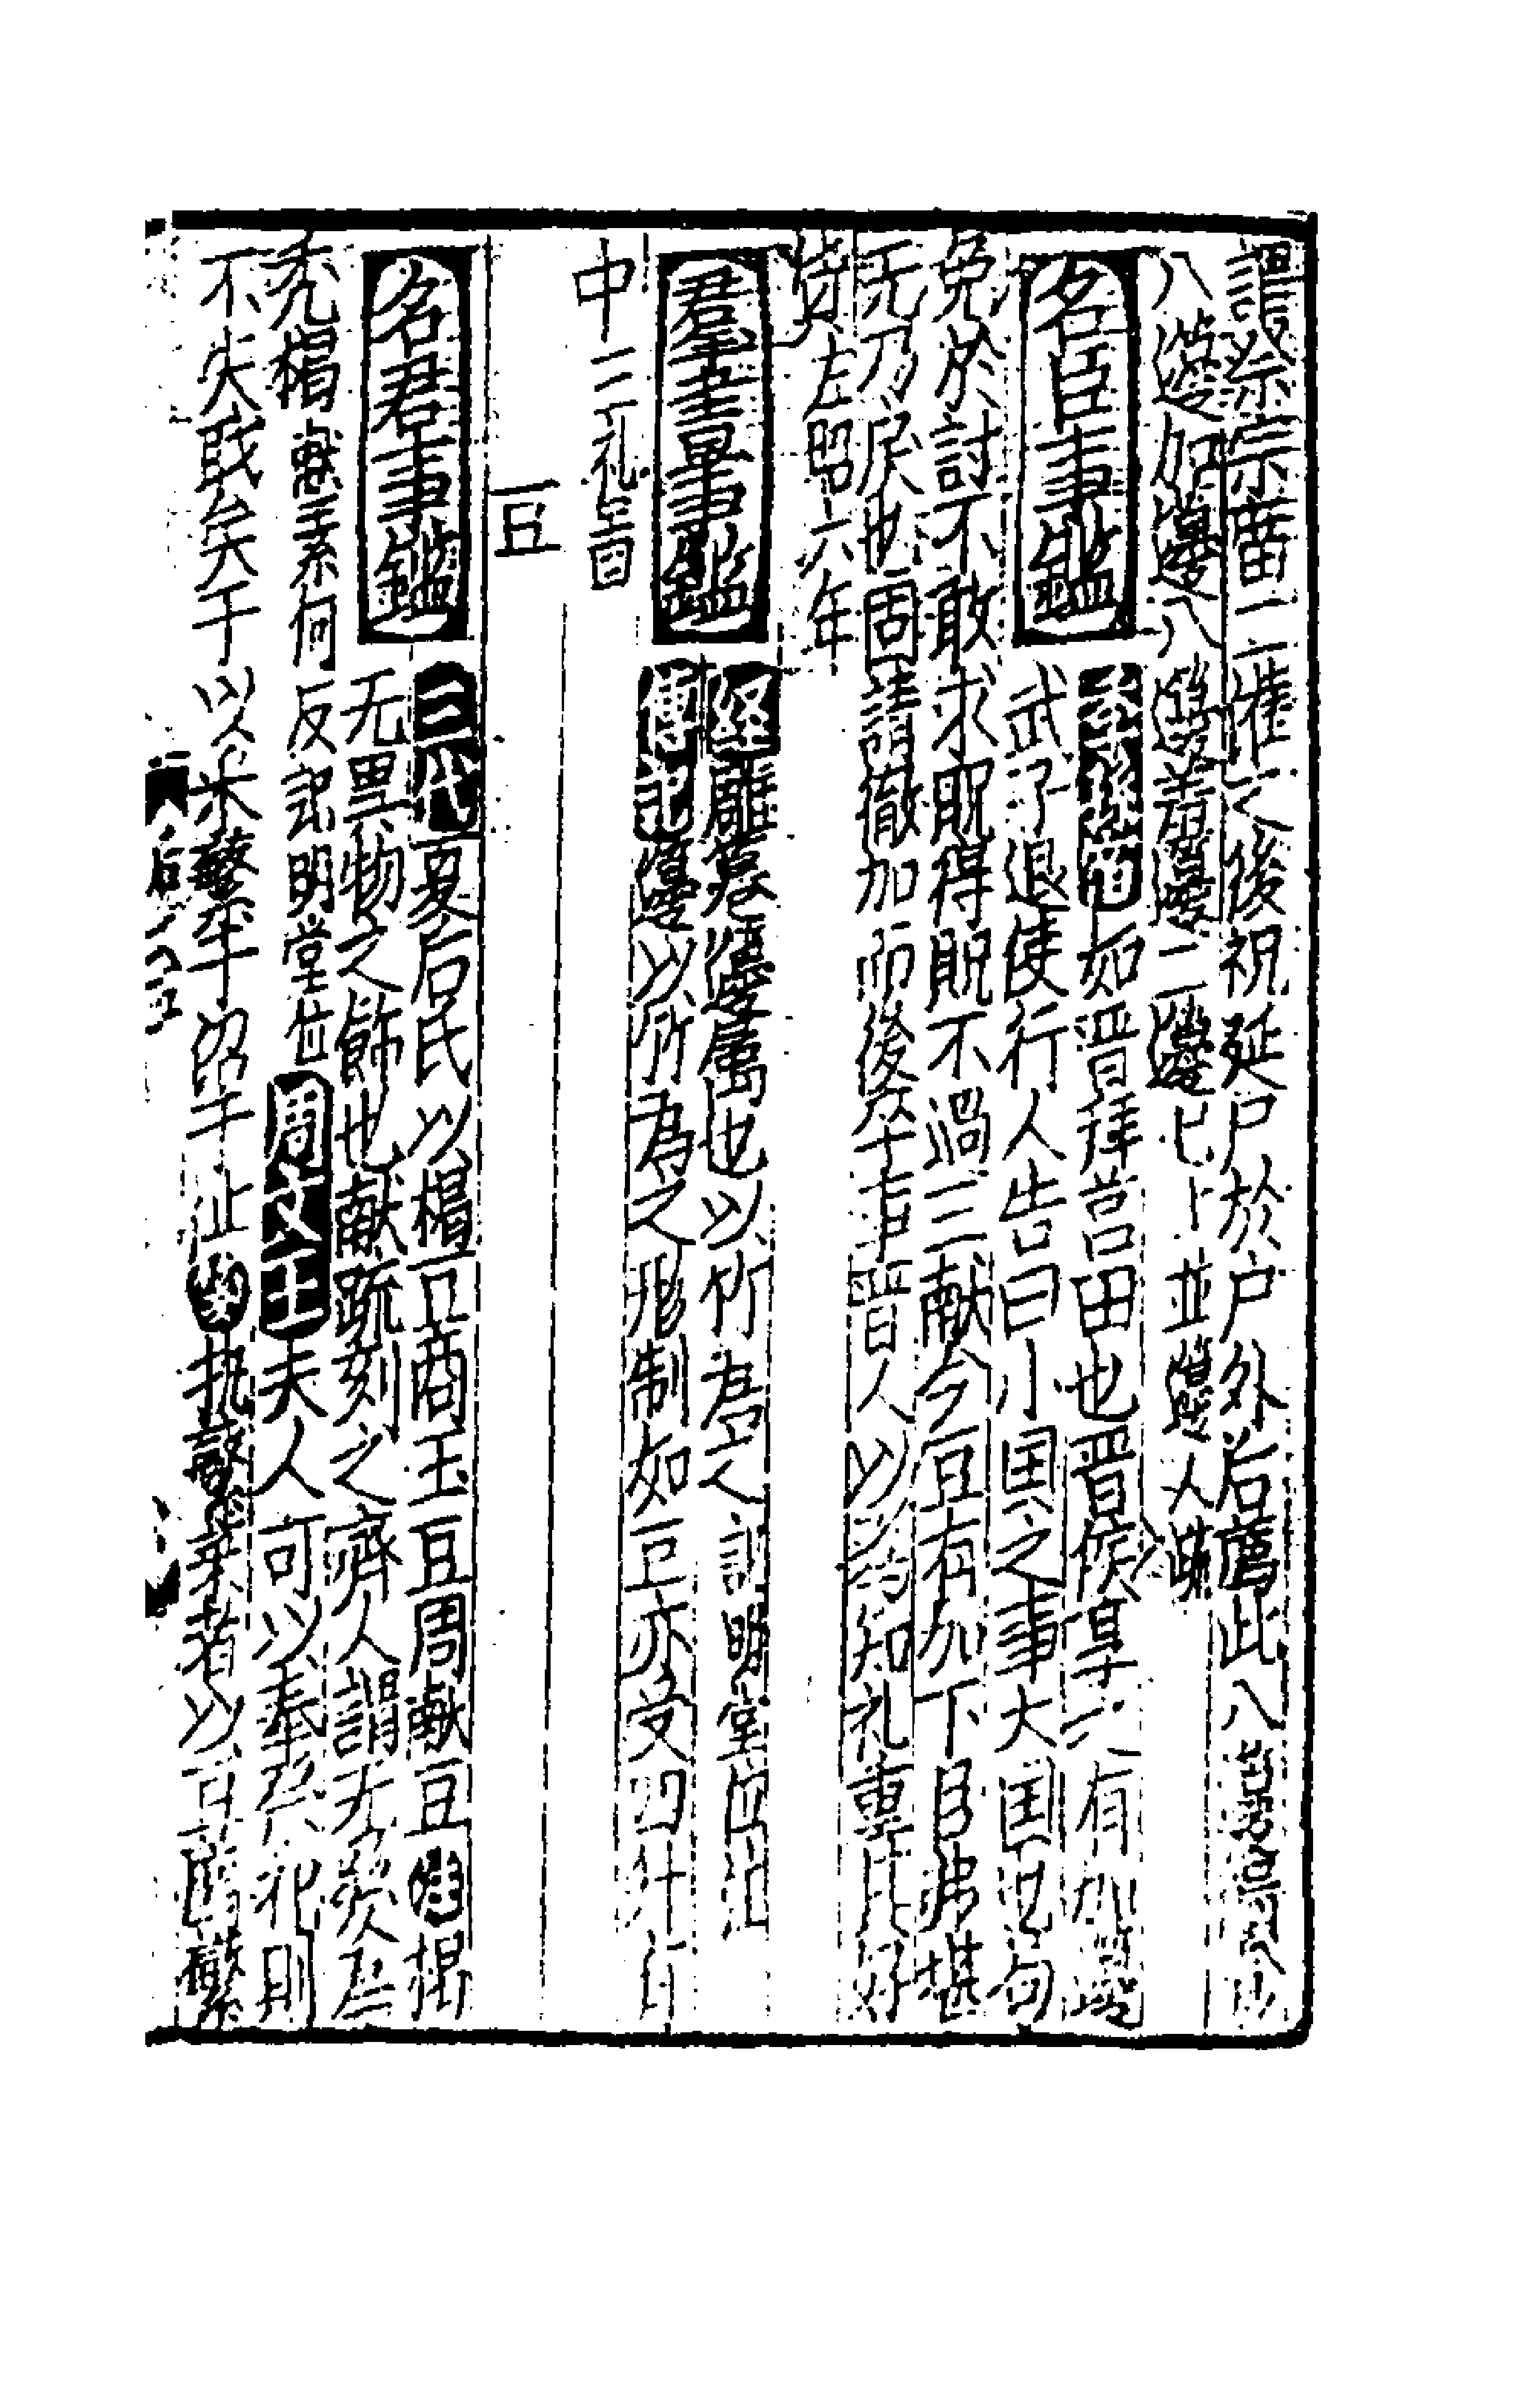 謂祭宗廟二灌之後祝延尸於户外后薦此八
八籩加籩八籩羞籩二籩已上並籩人
名臣事鑑 如晋拜莒田也晋侯享之有加籩
武子退使行人告曰小国之事大国也苟
免於討不敢求貺得貺不過三献今豆有加下臣弗堪
无乃戾也固請徹加而後卒事晋人以為知礼重其好
貨左昭六年
羣書事鑑 經雕篹籩屬也以竹為之 記明堂位注
傳記籩以竹為之形制如豆亦受四升
中 三礼啚
豆
名君事鑑 三代夏后氏以楬豆商玉豆周献豆 注楬
无異物之飾也献疏刻之齊人謂无髮為
禿楬 献素何反記明堂位 周文王夫人可以奉祭祀則
不失戝矣于以采蘩于沼于沚 执蘩菜者以豆薦蘩